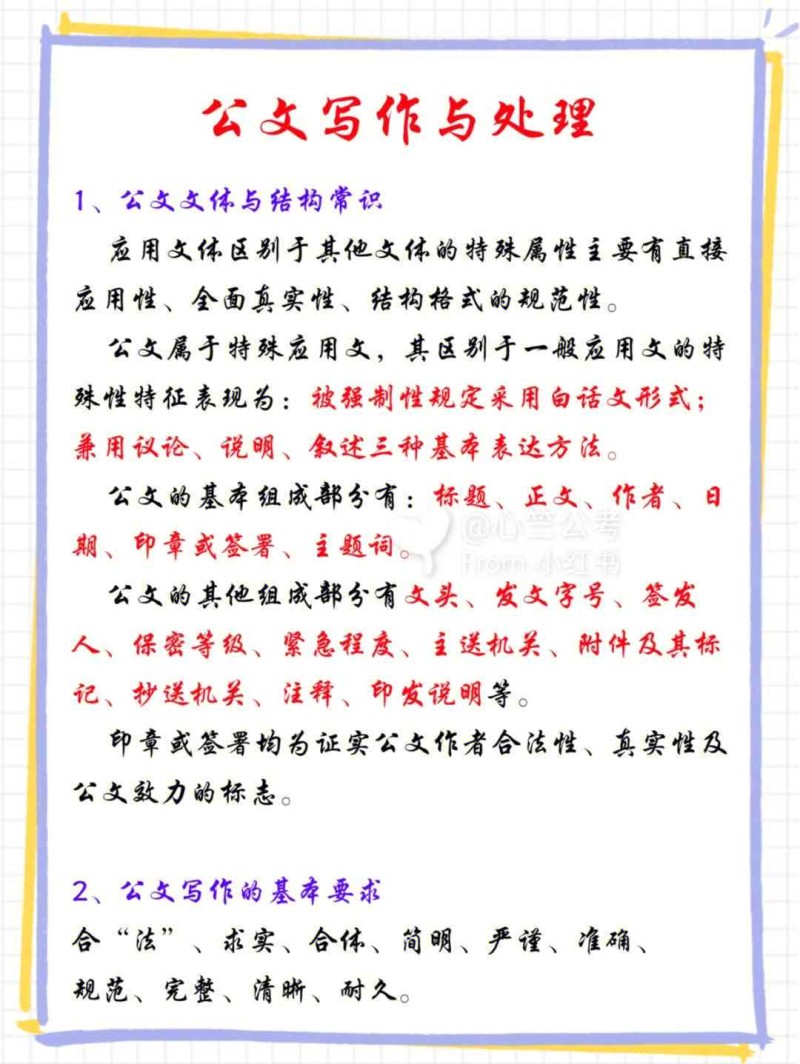 公文写作与处理
1、公文文体与结构常识
应用文体区别于其他文体的特殊属性主要有直接
应用性、全面真实性、结构格式的规范性。
公文属于特殊应用文，其区别于一般应用文的特
殊性特征表现为：被强制性规定采用白话文形式；
兼用议论、说明、叙述三种基本表达方法。
公文的基本组成部分有：标题、正文、作者、日
期、印章或签署、主题词。
@心竺公考
From 小红书
公文的其他组成部分有文头、发文字号、签发
人、保密等级、紧急程度、主送机关、附件及其标
记、抄送机关、注释、印发说明等。
印章或签署均为证实公文作者合法性、真实性及
公文效力的标志。
2、公文写作的基本要求
合“法”、求实、合体、简明、严谨、准确、
规范、完整、清晰、耐久。